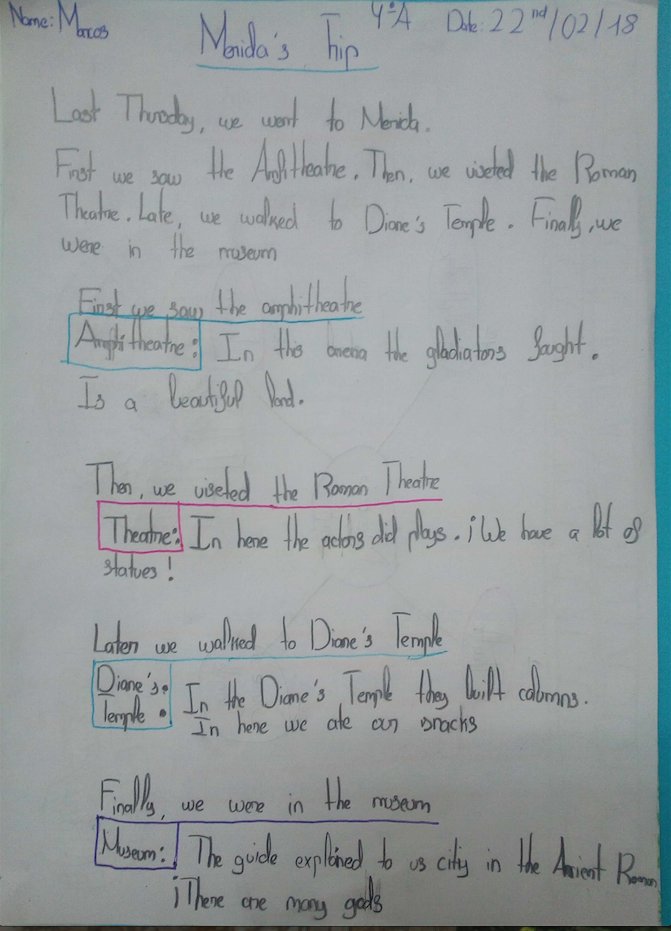 Name: Marcos 4ºA Date: 22nd/02/18
Merida's Trip
Last Thursday, we went to Merida.
First we saw the Anfitheatre. Then, we viseted the Roman
Theatre. Late, we walked to Diane's Temple. Finally, we
were in the museum
First we saw the amphitheatre
Amphitheatre: In this arena the gladiators fought.
Is a beautiful
Then, we viseted the Roman Theatre
Theatre: In here the actors did plays. ¡We have a lot of
statues!
Later we walked to Diane's Temple
Diane's Temple: In the Diane's Temple they built columns.
In here we ate our snacks
Finally, we were in the museum
Museum: The guide explained to us city in the Ancient Roman
¡There are many gods